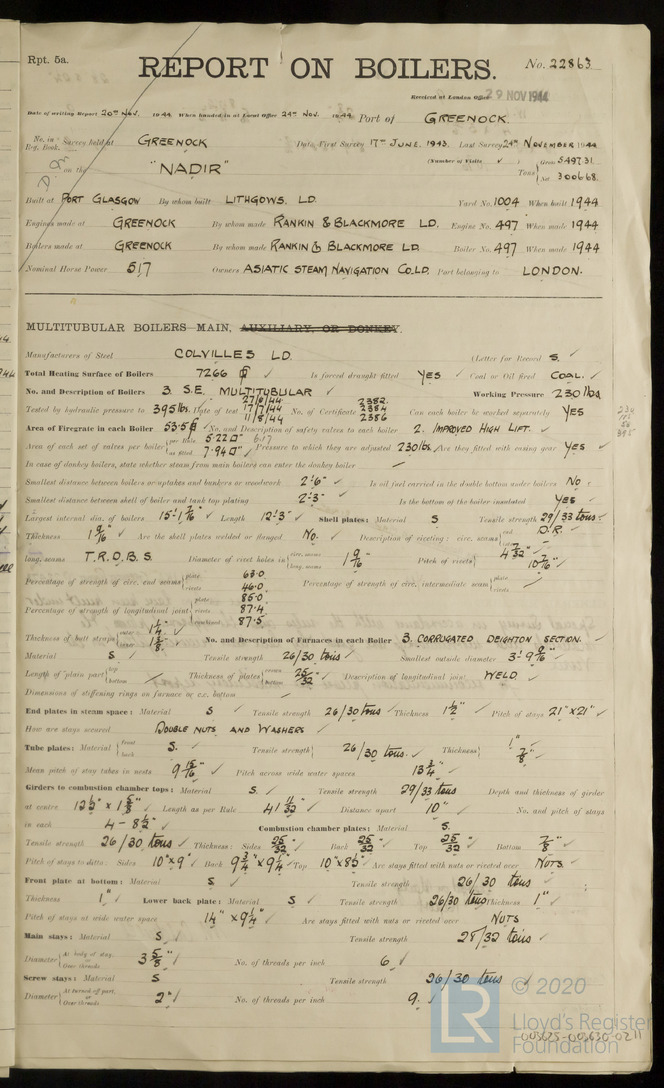 Rpt. 5a.
REPORT ON BOILERS.
No. 22863
Received at London Office 29 NOV 1944
Date of writing Report 20th Nov. 1944 When handed in at Local Office 24th Nov. 1944 Port of GREENOCK.
No. in Reg. Book. Survey held at GREENOCK Date, First Survey 17th JUNE. 1943. Last Survey 24th NOVEMBER 1944
on the "NADIR" (Number of Visits ) Tons Gross 5497.31. Net 3006.68.
Built at PORT GLASGOW By whom built LITHGOWS. LD. Yard No. 1004 When built 1944
Engines made at GREENOCK By whom made RANKIN & BLACKMORE LD. Engine No. 497 When made 1944
Boilers made at GREENOCK By whom made RANKIN & BLACKMORE LD Boiler No. 497 When made 1944
Nominal Horse Power 517 Owners ASIATIC STEAM NAVIGATION CO. LD. Port belonging to LONDON.
MULTITUBULAR BOILERS MAIN, AUXILIARY, OR DONKEY.
Manufacturers of Steel COLVILLES LD. (Letter for Record S. ✓
Total Heating Surface of Boilers 7266 ✓ Is forced draught fitted YES ✓ Coal or Oil fired COAL. ✓
No. and Description of Boilers 3. S.E. MULTITUBULAR ✓ Working Pressure 230 lbs.
Tested by hydraulic pressure to 395 lbs. Date of test 17/7/44 11/8/44 No. of Certificate 2382. 2384 2386 Can each boiler be worked separately YES
Area of Firegrate in each Boiler 53.5 No. and Description of safety valves to each boiler 2. IMPROVED HIGH LIFT. ✓
Area of each set of valves per boiler per Rule 5.22 □" as fitted 7.94 □" Pressure to which they are adjusted 230 lbs. Are they fitted with easing gear YES ✓
In case of donkey boilers, state whether steam from main boilers can enter the donkey boiler
Smallest distance between boilers or uptakes and bunkers or woodwork 2'-6" ✓ Is oil fuel carried in the double bottom under boilers No
Smallest distance between shell of boiler and tank top plating 2'-3" Is the bottom of the boiler insulated YES
Largest internal dia. of boilers 15'-1 7/16" ✓ Length 12'-3" ✓ Shell plates: Material S Tensile strength 29/33 tons
Thickness 1 9/16" ✓ Are the shell plates welded or flanged No. ✓ Description of riveting: circ. seams end D.R.
long. seams T.R.D.B.S. Diameter of rivet holes in circ. seams long. seams 1 9/16 Pitch of rivets 4 7/32" 10 7/16"
Percentage of strength of circ. end seams plate 63.0 rivets 46.0 Percentage of strength of circ. intermediate seam plate rivets
Percentage of strength of longitudinal joint plate 85.0 rivets 87.4 combined 87.5
Thickness of butt straps outer 1 1/4" inner 1 3/8" No. and Description of Furnaces in each Boiler 3. CORRUGATED DEIGHTON SECTION.
Material S Tensile strength 26/30 tons ✓ Smallest outside diameter 3'-9 9/16"
Length of plain part top bottom Thickness of plates crown bottom 25/32" Description of longitudinal joint WELD.
Dimensions of stiffening rings on furnace or c.c. bottom
End plates in steam space: Material S ✓ Tensile strength 26/30 tons Thickness 1 1/2" ✓ Pitch of stays 21" x 21" ✓
How are stays secured DOUBLE NUTS AND WASHERS ✓
Tube plates: Material front back S. ✓ Tensile strength 26/30 tons. Thickness 1" 7/8"
Mean pitch of stay tubes in nests 9 15/16" Pitch across wide water spaces 13 3/4" ✓
Girders to combustion chamber tops: Material S. ✓ Tensile strength 29/33 tons Depth and thickness of girder
at centre 12 1/2" x 1 5/8" Length as per Rule 41 11/32" ✓ Distance apart 10" ✓ No. and pitch of stays
in each 4 - 8 1/2" ✓ Combustion chamber plates: Material S.
Tensile strength 26/30 tons Thickness: Sides 25/32" Back 25/32" Top 25/32" Bottom 7/8"
Pitch of stays to ditto: Sides 10" x 9" Back 9 3/4" x 9 1/4" Top 10" x 8 1/2" Are stays fitted with nuts or riveted over NUTS.
Front plate at bottom: Material S ✓ Tensile strength 26/30 tons
Thickness 1" Lower back plate: Material S ✓ Tensile strength 26/30 tons Thickness 1"
Pitch of stays at wide water space 14" x 9 1/4" Are stays fitted with nuts or riveted over NUTS
Main stays: Material S. ✓ Tensile strength 28/32 tons
Diameter At body of stay, or Over threads 3 5/8" ✓ No. of threads per inch 6 ✓
Screw stays: Material S Tensile strength 26/30 tons
Diameter At turned off part, or Over threads 2" ✓ No. of threads per inch 9. ✓
LR © 2020
Lloyd's Register
Foundation
003625-003630-0211